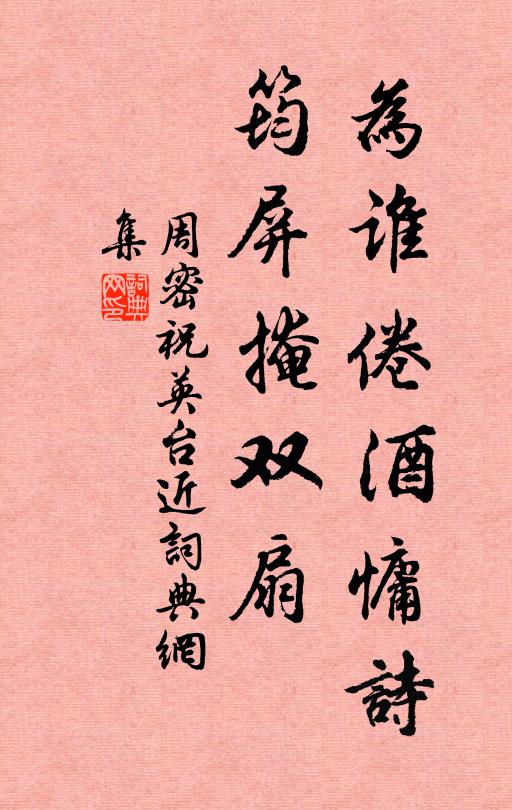 為谁倦酒慵詩
筠屏掩双扇
周密祝英台近詞典網
集
詞典
网印